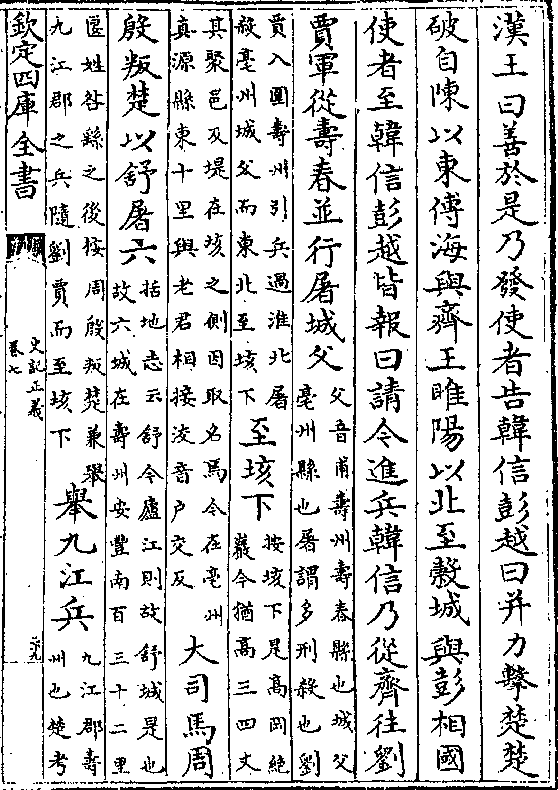 漢王曰善於是乃發使者告韓信彭越曰并力擊楚楚
破自陳以東傅海與齊王睢陽以北至穀城與彭相國
使者至韓信彭越皆報曰請今進兵韓信乃從齊往劉
賈軍從壽春並行屠城父
父音甫壽州壽春縣也城父
亳州縣也屠謂多刑殺也劉
賈入圍壽州引兵過淮北屠
殺亳州城父而東北至垓下
至垓下
按垓下是高岡絶
巖今猶高三四丈
其聚邑及堤在垓之側因取名焉今在亳州
真源縣東十里與老君相接浚音户交反
大司馬周
殷叛楚以舒屠六
括地志云舒今廬江則故舒城是也
故六城在壽州安豐南百三十二里
匽姓咎繇之後按周殷叛楚兼舉
九江郡之兵隨劉賈而至垓下
舉九江兵
九江郡壽
州也楚考
欽定四庫全書
史記正義
卷七
二十九